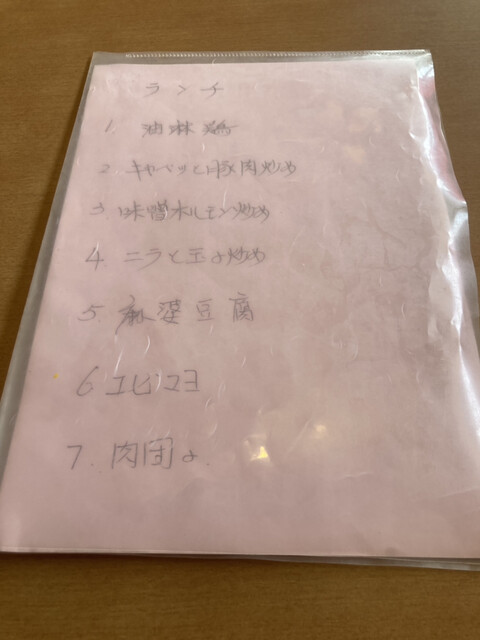 ランチ
1. 油淋鶏
2. キャベツと豚肉炒め
3 味噌ホルモン炒め
4. ニラと玉子炒め
5. 麻婆豆腐
6 エビマヨ
7. 肉団子